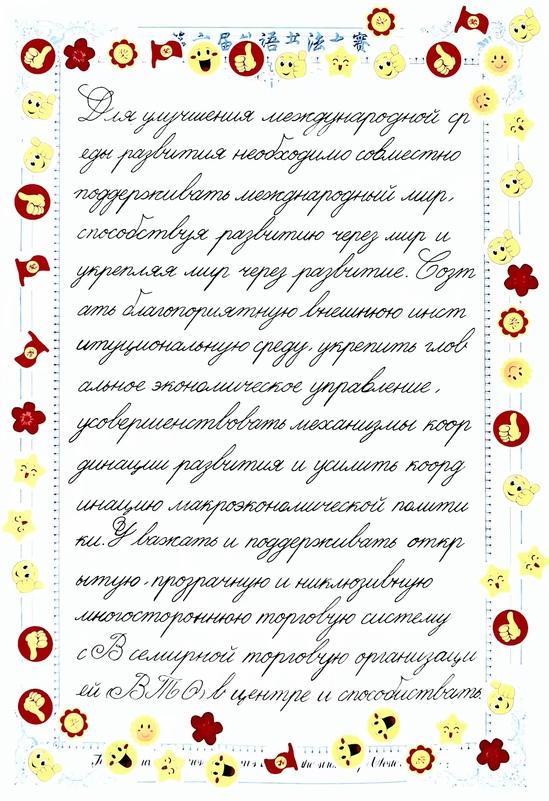 第六届外语书法大赛
Для улучшения международной ср
еды развития необходимо совместно
поддерживать межднародный мир,
способствуя развитию через мир и
укрепляя мир через развитие. Созт
ать благопориятную внешнюю инст
итуциональную среду, укрепить глов
альное экономическое управление,
усовершенствовать механизмы коор
динации развития и усилить коорд
инацию макроэкономической полити
ки. Уважать и поддерживать откр
ытую, прозрачную и никлюзивную
многостороннюю торговую систему
с Всемирной торговую организаци
ей (ВТО) в центре и способиствать